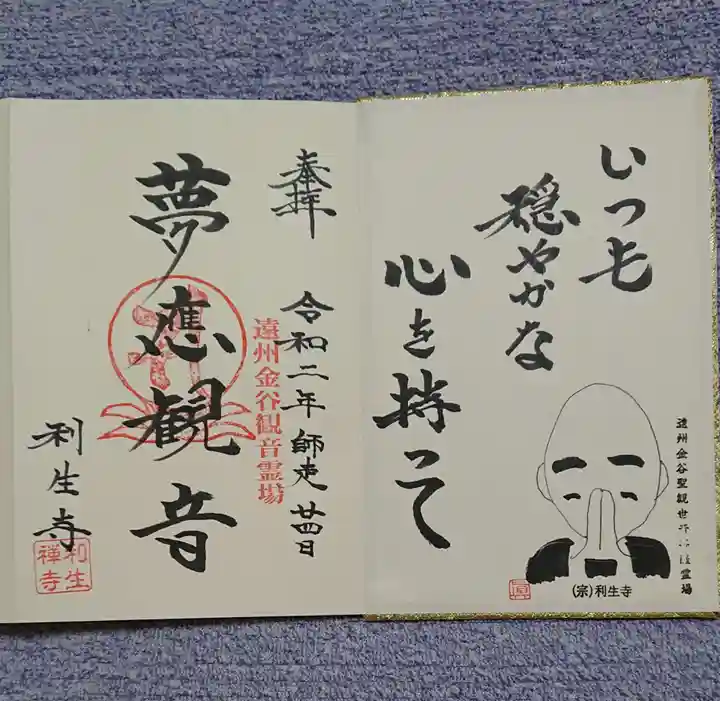 いつも
穏やかな
心を持って
遠州金谷聖観世音霊場
(宗)利生寺
奉拝
令和二年師走廿四日
遠州金谷観音霊場
夢應観音
利生寺
利生
禅寺